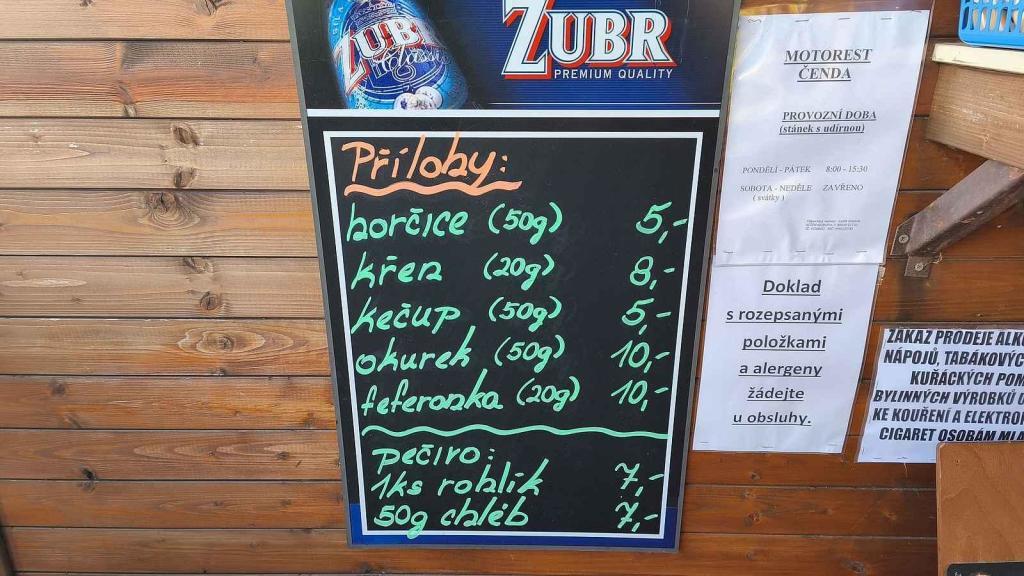 ZUBR
PREMIUM QUALITY
ZUBR
Příloby:
horčice (50g) 5,-
křen (20g) 8,-
kečup (50g) 5,-
okurek (50g) 10,-
feferonka (20g) 10,-
pečivo:
1ks rohlík 7,-
50g chléb 7,-
MOTOREST
ČENDA
PROVOZNÍ DOBA
(stánek s udírnou)
PONDĚLÍ - PÁTEK 8:00 - 15:30
SOBOTA - NEDĚLE ZAVŘENO
( svátky )
Doklad
s rozepsanými
položkami
a alergeny
žádejte
u obsluhy.
ZÁKAZ PRODEJE ALK
NÁPOJŮ, TABÁKOVÝC
KUŘÁCKÝCH POM
BYLINNÝCH VÝROBKŮ
KE KOUŘENÍ A ELEKTRO
CIGARET OSOBÁM